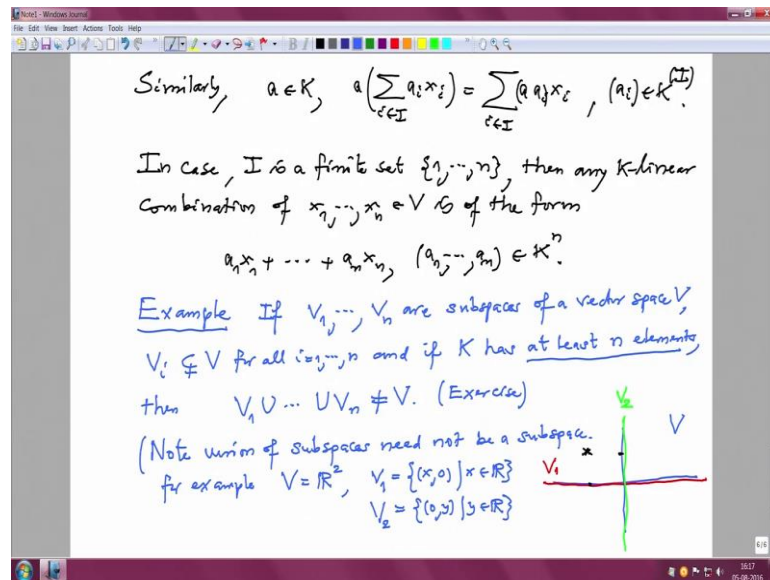 Note1 - Windows Journal
File Edit View Insert Actions Tools Help
Similarly, a ∈ K, a(∑_{i∈I} a_i x_i) = ∑_{i∈I} (a a_i) x_i , (a_i) ∈ K^{(I)}.
In case, I is a finite set {1,⋯,n}, then any K-linear
combination of x_1,⋯,x_n ∈ V is of the form
a_1 x_1 + ⋯ + a_n x_n, (a_1,⋯,a_n) ∈ K^n.
Example If V_1,⋯,V_n are subspaces of a vector space V,
V_i ⊊ V for all i=1,⋯,n and if K has at least n elements,
then V_1 ∪ ⋯ ∪ V_n ≠ V. (Exercise)
(Note union of subspaces need not be a subspace.
for example V = ℝ^2, V_1 = {(x,0) | x ∈ ℝ}
V_2 = {(0,y) | y ∈ ℝ}
V_2
V
x
V_1
6/6
16:17
05-08-2016